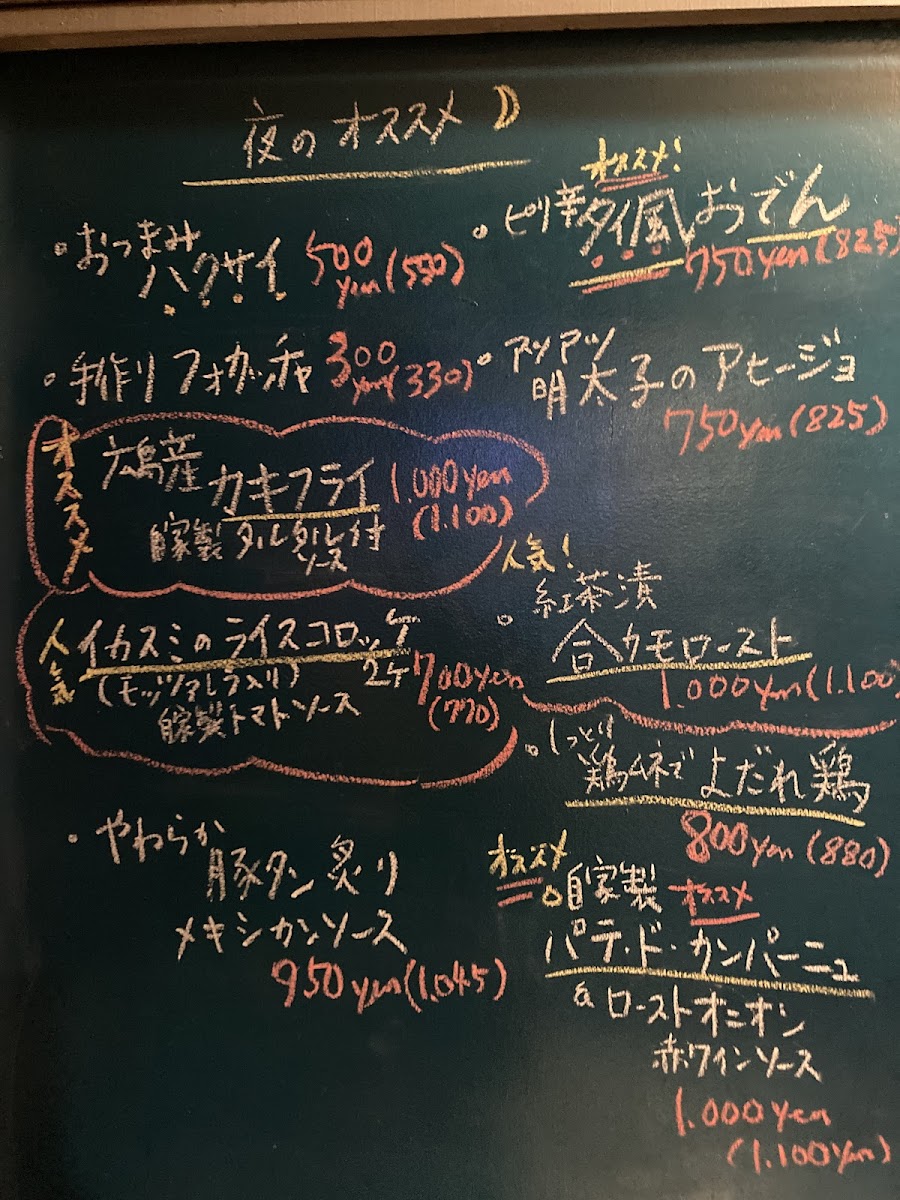 夜のオススメ
・おつまみ
ハクサイ 500
yen(550)
・手作リ フォカッチャ 300
yen(330)
オススメ
広島産
カキフライ 1.000yen
(1.100)
自家製 タルタル付
ソース
人気
イカスミのライスコロッケ
2ケ 700yen
(770)
(モッツァレラ入り)
自家製トマトソース
・やわらか
豚タン炙り
メキシカンソース
950yen(1.045)
オススメ!
・ピリ辛タイ風おでん
750yen(825)
・アツアツ
明太子のアヒージョ
750yen(825)
人気!
・紅茶漬
合カモロースト
1.000yen(1.100)
・しっとり
鶏ムネで よだれ鶏
800yen(880)
オススメ
自家製 オススメ
パテ・ド・カンパーニュ
& ローストオニオン
赤ワインソース
1.000yen
(1.100yen)